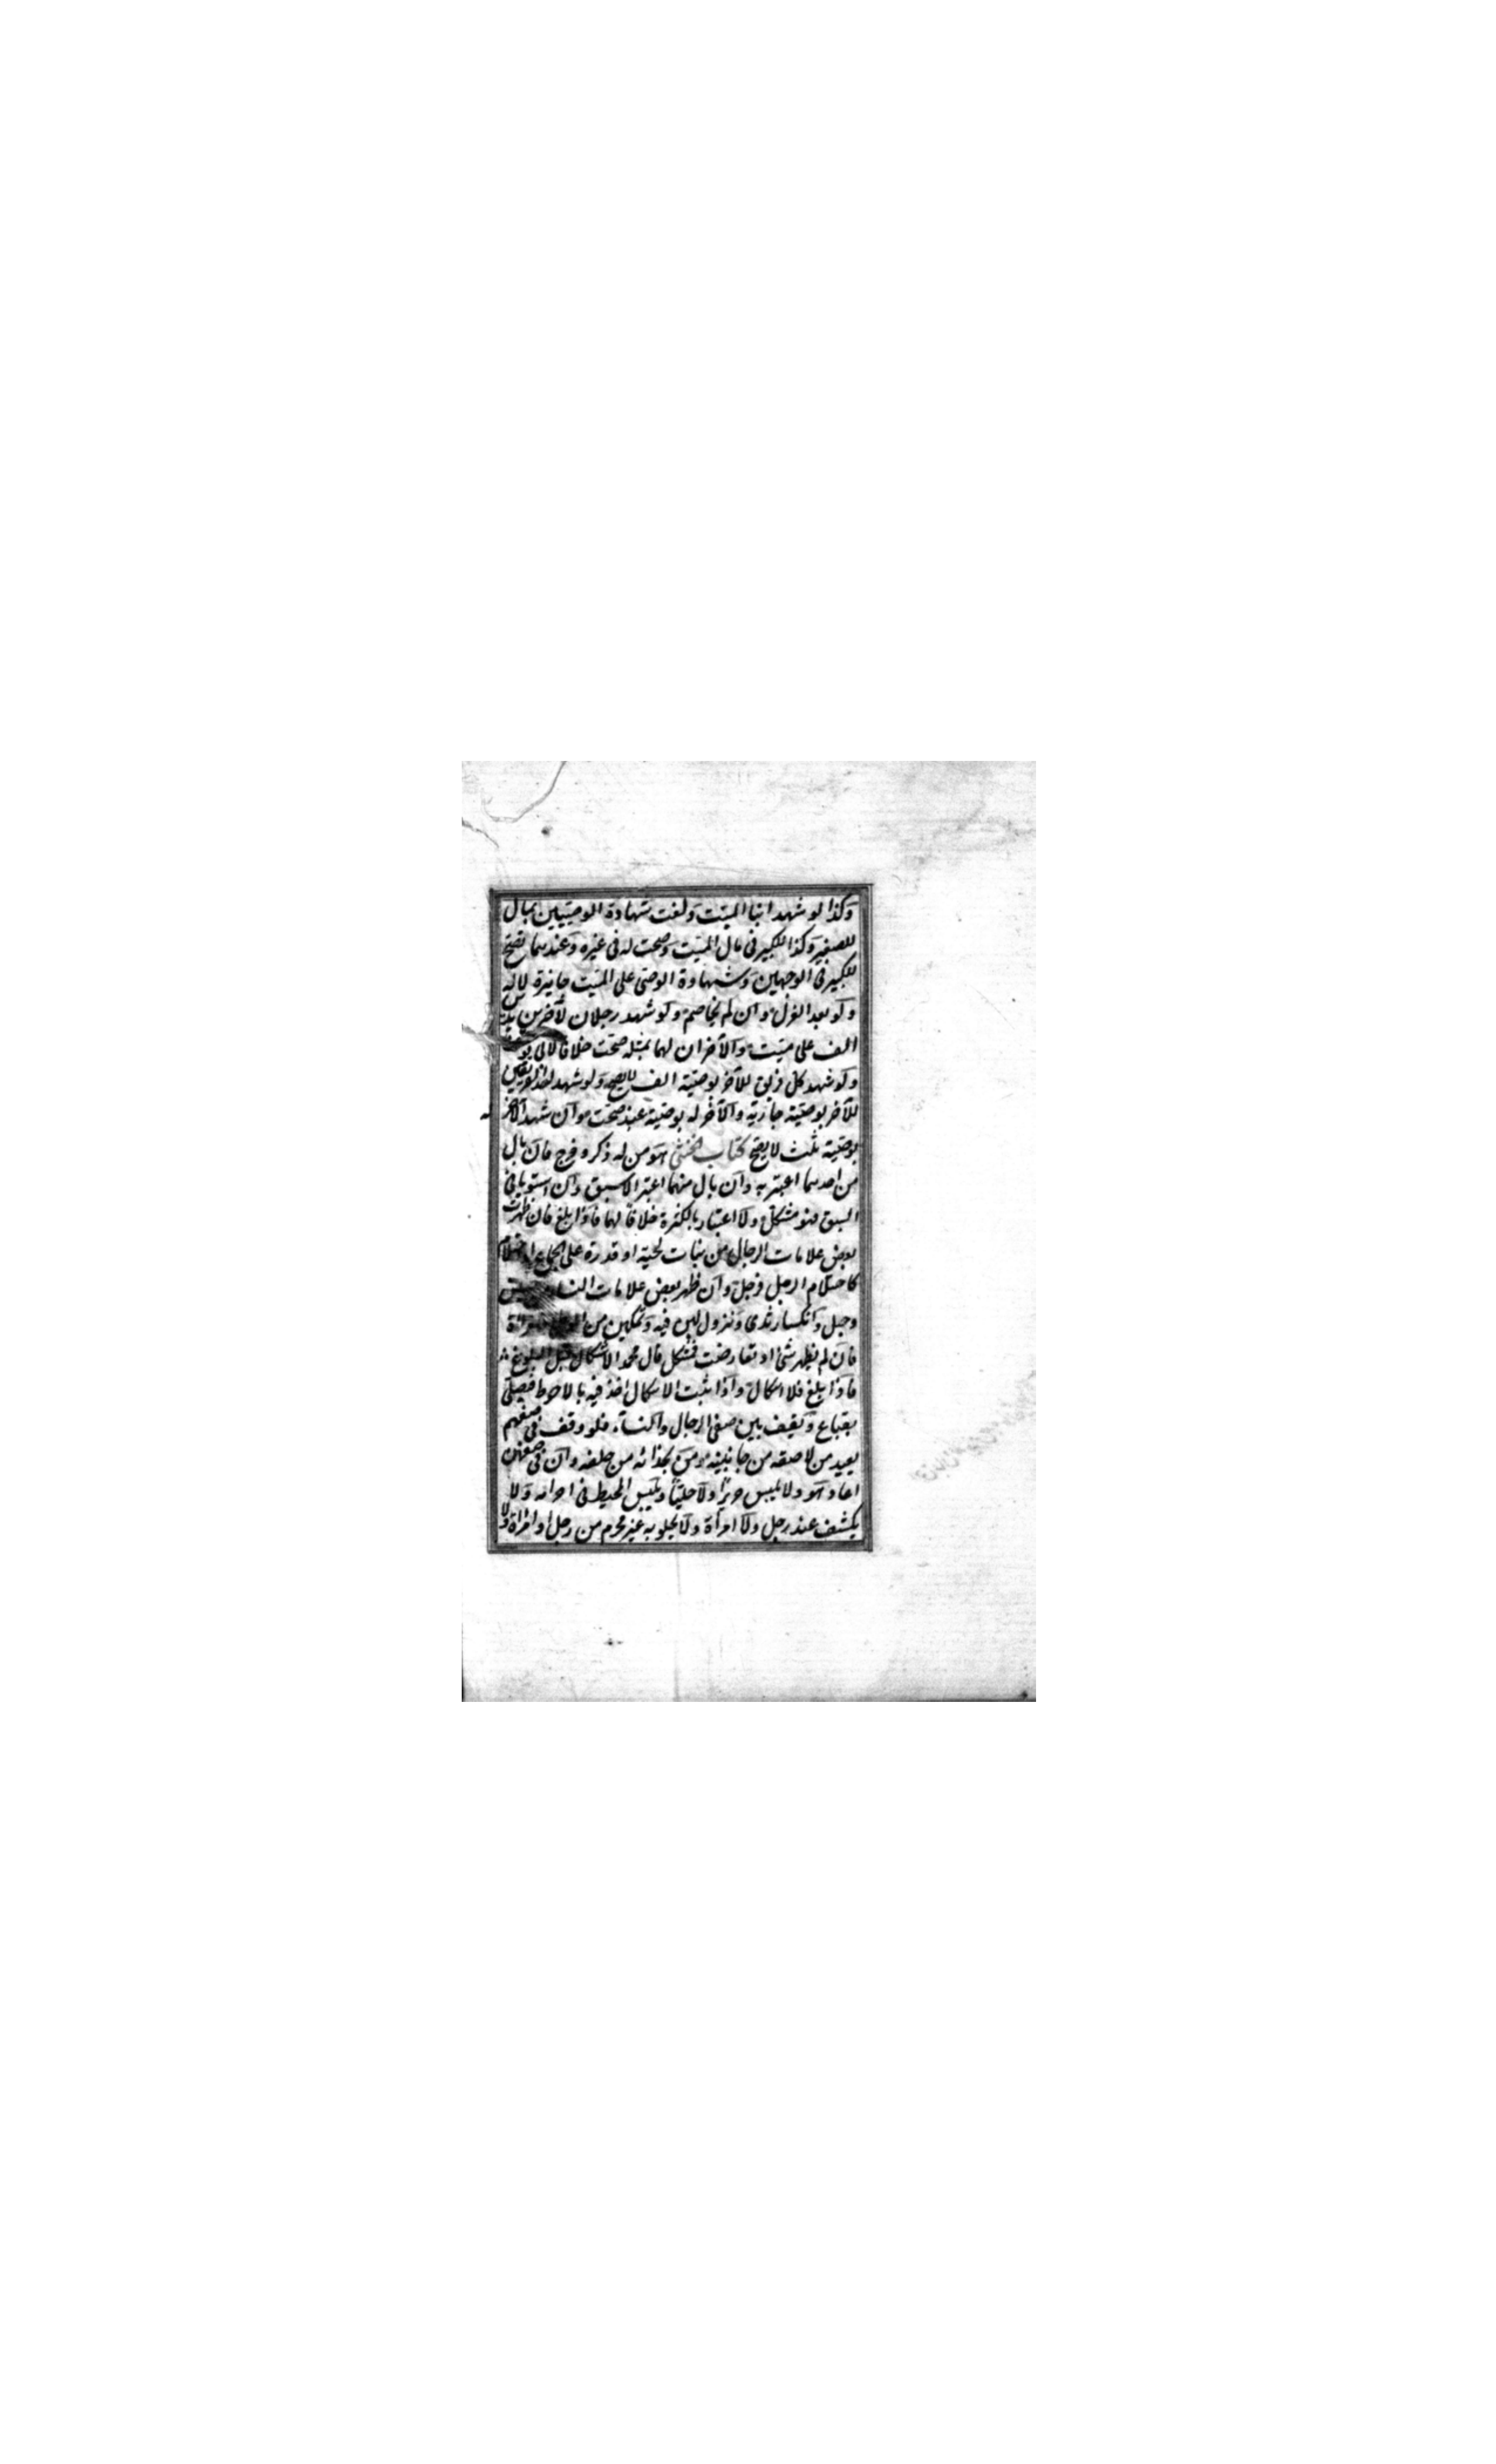 وكذا لو شهد ابنا الميت ولغت شهادة الوصيين بمال
للصغير وكذا للكبير فى مال الميت وصحت له فى غيره وعندهما تصح
للكبير فى الوجهين وشهادة الوصى على الميت جائزة لا له
ولو بعد العزل وان لم يخاصم ولو شهد رجلان لآخرين بدين
الف على ميت والآخران لهما بمثله صحت خلافا لابى يوسف
ولو شهد كل فريق للآخر بوصية الف لا يصح ولو شهد احد الفريقين
للآخر بوصية جارية والآخر له بوصية عبد صحت وان شهد الآخر له
بوصية ثلث لا يصح كتاب الخنثى هو من له ذكر وفرج فان بال
من احدهما اعتبر به وان بال منهما اعتبر الاسبق وان استويا فى
السبق فهو مشكل ولا اعتبار بالكثرة خلافا لهما فاذا بلغ فان ظهرت
بعض علامات الرجال من نبات لحية او قدرة على الجماع او احتلام
كاحتلام الرجل فرجل وان ظهر بعض علامات النساء من حيض
وحبل وانكسار ثدى ونزول لبن فيه وتمكين من الوطئ فامرأة
فان لم يظهر شئ او تعارضت فمشكل قال محمد الاشكال قبل البلوغ
فاذا بلغ فلا اشكال واذا ثبت الاشكال اخذ فيه بالاحوط فيصلى
بقناع ويقف بين صفى الرجال والنساء فلو وقف فى صفهم
يعيد من لاصقه من جانبيه ومن بحذائه من خلفه وان فى صفهن
اعاد هو ولا يلبس حريرا ولا حليا ويلبس المخيط فى احرامه ولا
يكشف عند رجل ولا امرأة ولا يخلو به غير محرم من رجل او امرأة ولا